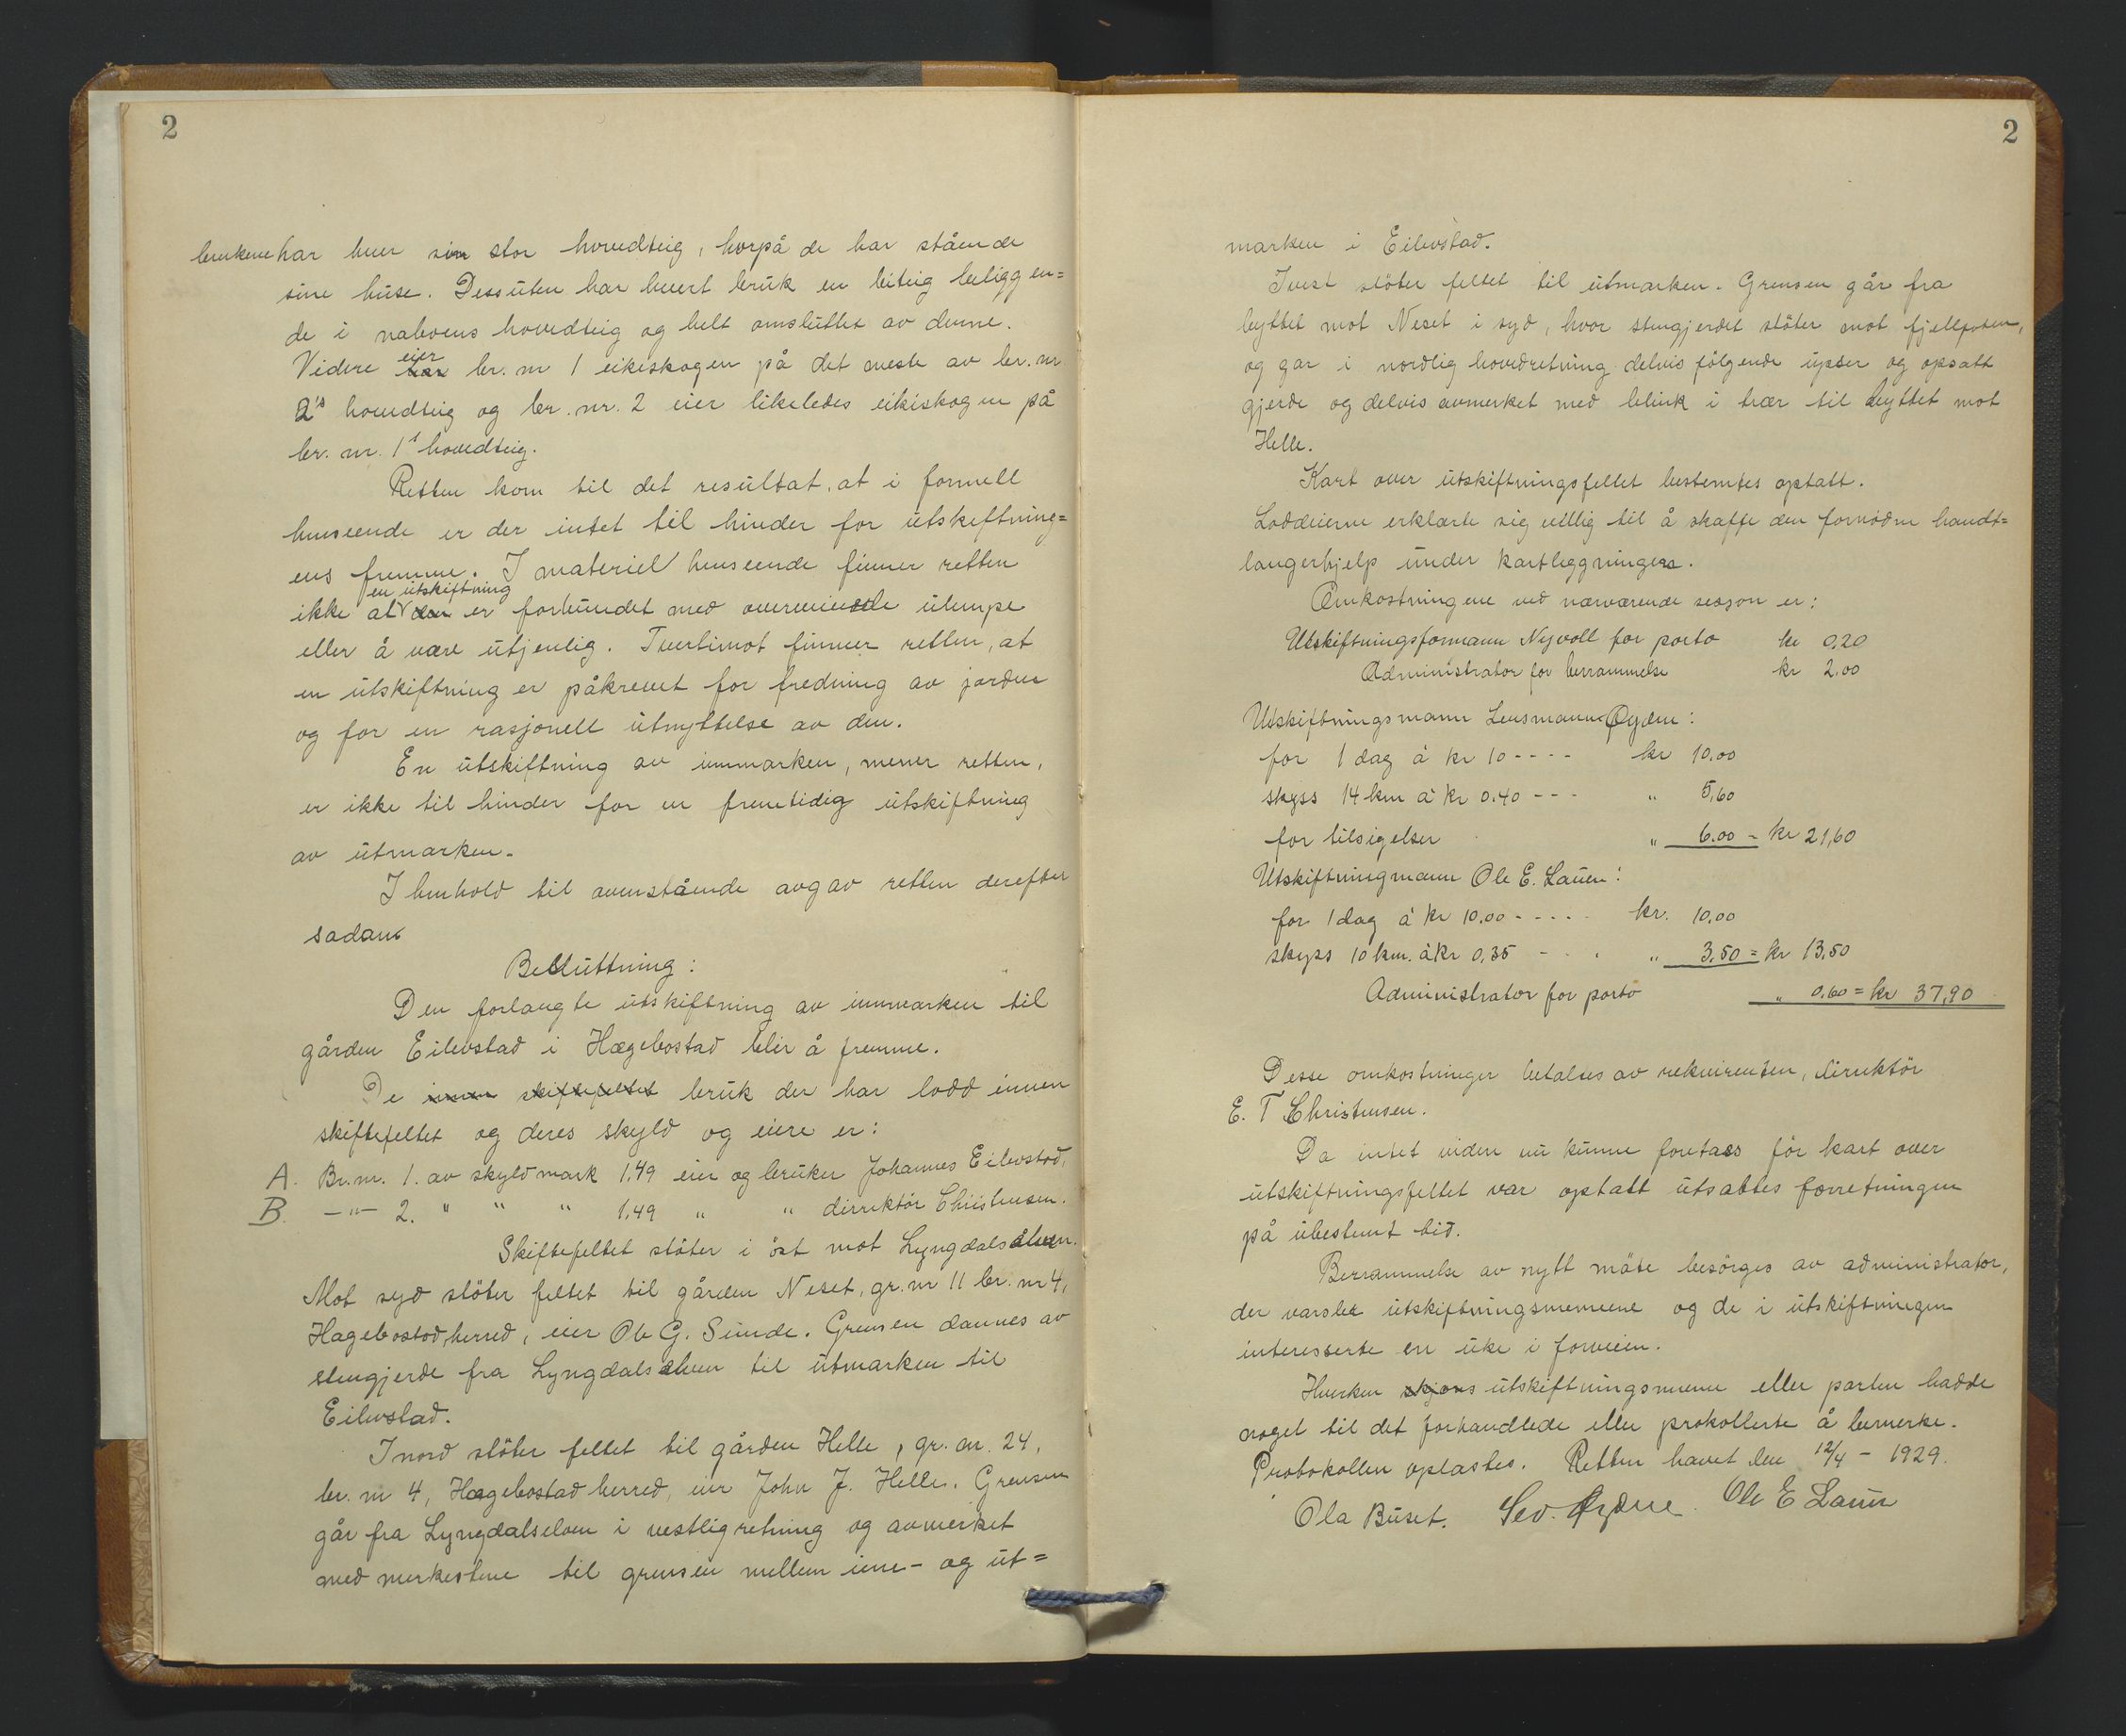 2
brukene har hver sin stor hovedteig, hvorpå de har stående
sine huse. Dessuten har hvert bruk en liteig beliggen=
de i naboens hovedteig og helt omsluttet av denne.
Videre eier br. nr 1 eikeskogen på det meste av br. nr.
2's hovedteig og br. nr. 2 eier likeledes eikeskogen på
br. nr. 1s hovedteig.
Retten kom til det resultat, at i formell
henseende er der intet til hinder for utskiftning=
ens fremme. I materiel henseende finner retten
ikke at en utskiftning er forbundet med overveiende ulempe
eller å være utjenlig. Tvertimot finner retten, at
en utskiftning er påkrevet for fredning av jorden
og for en rasjonell utnyttelse av den.
En utskiftning av innmarken, mener retten,
er ikke til hinder for en fremtidig utskiftning
av utmarken.
I henhold til ovenstående avgav retten derefter
sadan
Beslutning:
Den forlangte utskiftning av innmarken til
gården Eilevstad i Hægebostad blir å fremme.
De innen skiftefeltet bruk der har lodd innen
skiftefeltet og deres skyld og eiere er:
A. Br. nr. 1. av skyldmark 1.49 eier og bruker Johannes Eilevstad,
B. —"— 2. " " " 1,49 " " dirrektör Christensen.
Skiftefeltet stöter i öst mot Lyngdalselven.
Mot syd stöter feltet til gården Neset, gr. nr 11 br. nr 4,
Hagebostad herred, eier Ole G. Sunde. Grensen dannes av
stengjerde fra Lyngdalselven til utmarken til
Eilevstad.
I nord stöter feltet til gården Helle, gr. nr. 24,
br. nr 4, Hægebostad herred, eier John J. Helle. Grensen
går fra Lyngdalselven i vestlig retning og avmerket
med merkestene til grensen mellem inn- og ut=
2
marken i Eilevstad.
I vest stöter feltet til utmarken. Grensen går fra
byttet mot Neset i syd, hvor stengjerdet stöter mot fjellfoten,
og gar i nordlig hovedretning delvis fölgende upser og opsatt
gjerde og delvis avmerket med blink i trær til byttet mot
Helle.
Kart over utskiftningsfeltet bestemtes optatt.
Loddeierne erklærte sig villig til å skaffe den fornödne handt=
langerhjelp under kartleggningen.
Omkostningene ved nærværende sesjon er:
Utskiftningsformann Nyvoll for porto kr 0,20
Administrator for berammelse kr 2.00
Utskiftningsmann Lensmann Öydne:
for 1 dag à kr 10 - - - - kr 10.00
skyss 14 km à kr 0.40 - - - " 5,60
for tilsigelser " 6.00 = kr 21,60
Utskiftningmann Ole E. Lauen:
for 1 dag à kr 10.00 - - - - kr. 10.00
skyss 10 km. à kr 0,35 - - . " 3.50 = kr 13,50
Administrator for porto " 0.60 = kr 37,90
Desse omkostninger betales av rekvirenten, diruktör
E. T Christensen.
Da intet videre nu kunne foretaes för kart over
utskiftningsfeltet var optatt utsattes forretningen
på ubestemt tid.
Berammelse av nytt möte besörges av administrator,
der varsler utskiftningsmennene og de i utskiftningen
interesserte en uke i forveien.
Hverken skjöns utskiftningsmenn eller parten hadde
noget til det forhandlede eller protokollerte å bemerke.
Protokollen oplæstes. Retten hævet den 12/4 - 1929.
Ola Buset. Sev. Öydne Ole E Lauen